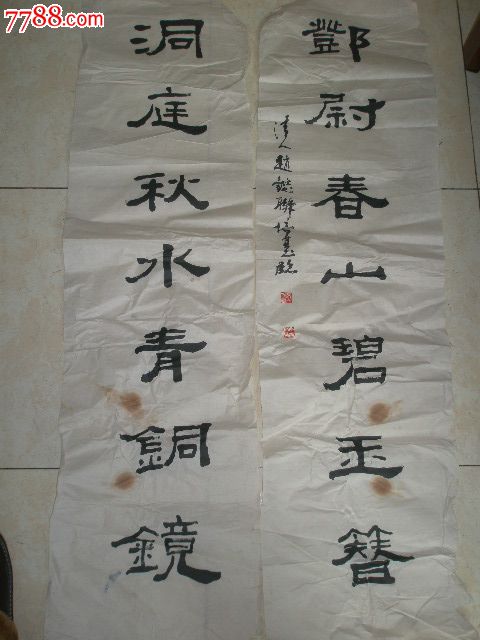 7788.com
鄧尉春山碧玉簪
洞庭秋水青銅鏡
清人趙
聯
臨